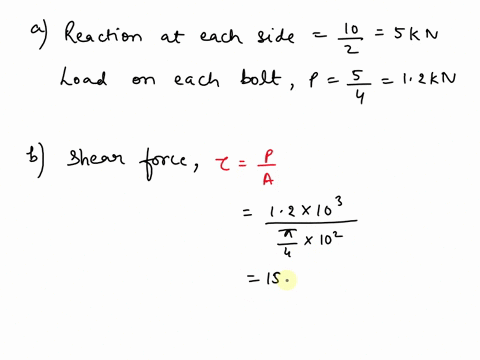 a) Reaction at each side = 10/2 = 5kN
Load on each bolt, P = 5/4 = 1.2kN
b) Shear force, τ = P/A
= 1.2 × 10³ / π/4 × 10²
= 15.